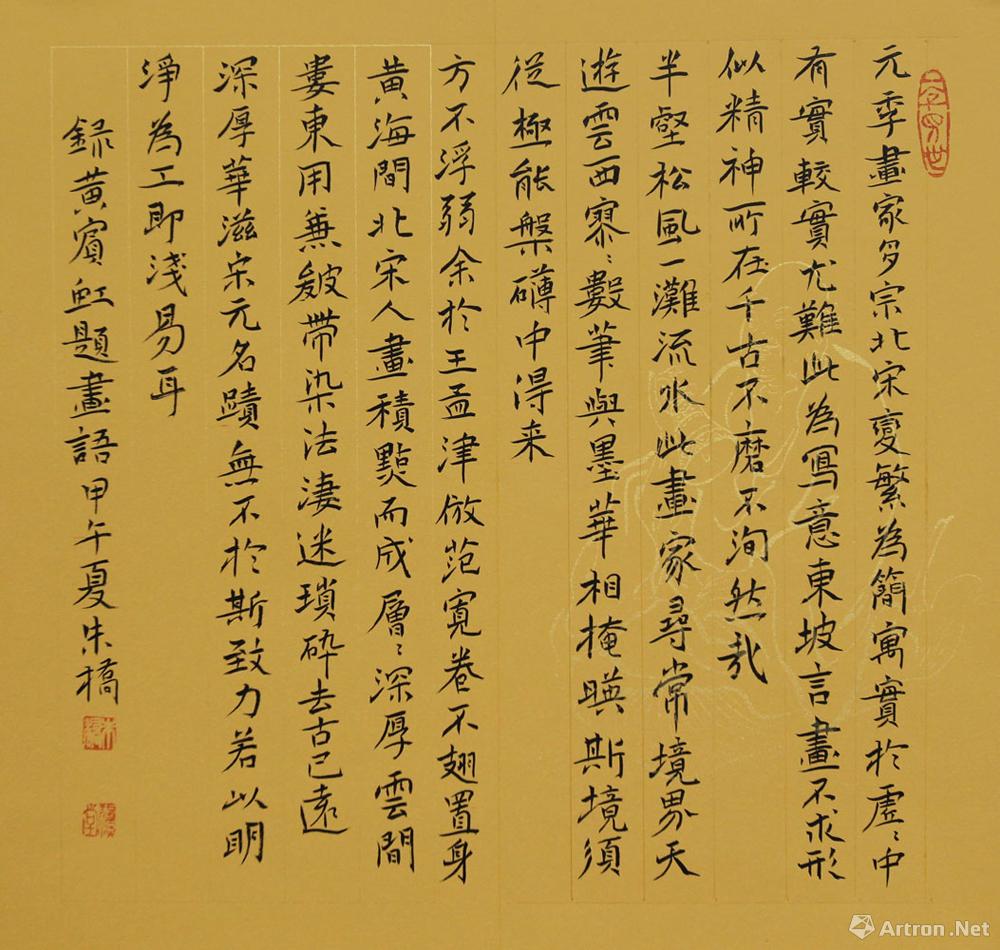 元季畫家多宗北宋變繁為簡寓實於虛〻中
有實較實尤難此為寫意東坡言畫不求形
似精神所在千古不磨不洵然哉
半壑松風一灘流水此畫家尋常境界天
遊雲西寥〻數筆與墨華相掩映斯境須
從極能槃礴中得来
方不浮弱余於王孟津倣范寬卷不翅置身
黄海間北宋人畫積點而成層〻深厚雲間
婁東用兼皴帶染法淒迷瑣碎去古已遠
深厚華滋宋元名蹟無不於斯致力若以明
淨為工即淺易耳
録黄賓虹題畫語甲午夏朱橋
Artron.Net